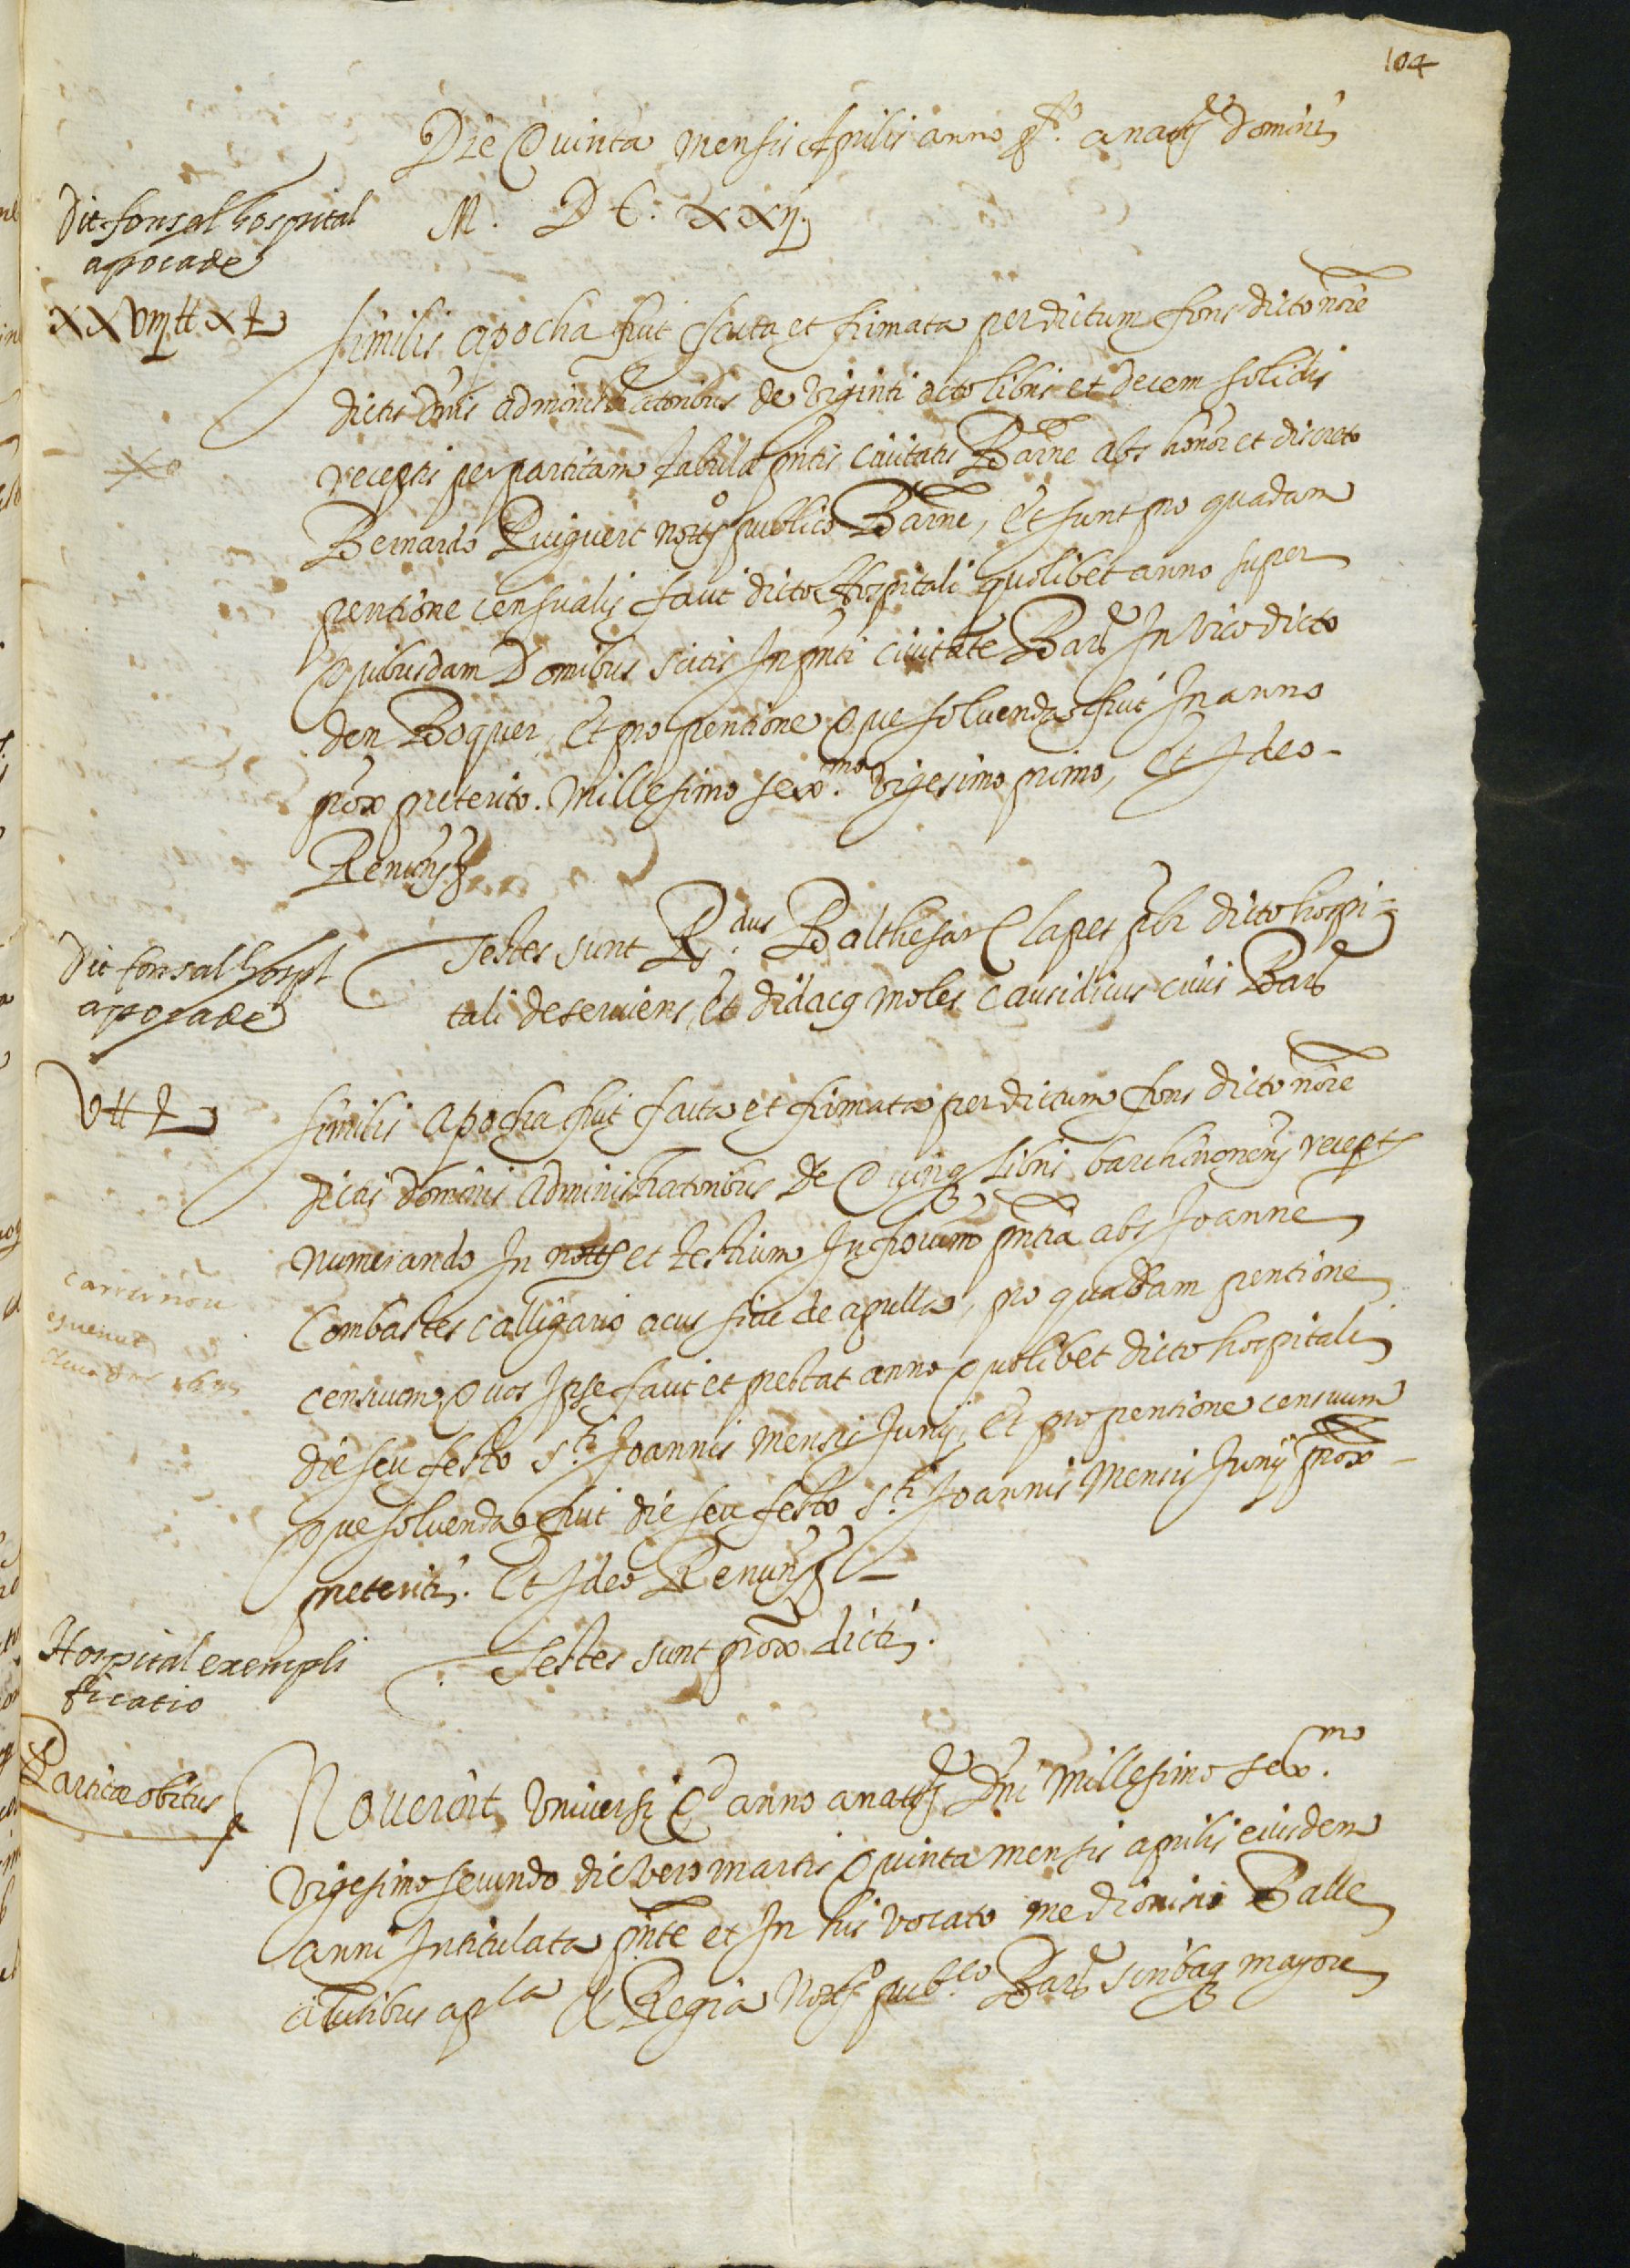 104
Die Quinta mensis Aprilis anno pto. a natte Domini
M. D C. XXij.
Dit fons al hospital
apoca de
XXviiij ll X s
Similis apocha fuit facta et firmata per dictum fons dicto noie
dictis dnis administratoribus de viginti octo libris et decem solidis
receptis per partitam tabulæ pntis civitatis Barne abs honor et discreto
Bernardo Puigvert notto publico Barne, et sunt pro quadam
pentione censualis facit dicto Hospitali quolibet anno super
Quibusdam Domibus scitis In pnti civitate Barne In vico dicto
den Boquer, et pro pentione que solvenda fuit In anno
prox preterito. Millesimo sexmo. vigesimo primo, et Ideo -
Renuns
Testes sunt Rdus. Balthesar Clapes pbr dicto hospi-
tali deserviens, et didacq moles causidicus civis Barne
Dit fons al hospl
apoca de
V ll s
Similis apocha fuit facta et firmata per dictum fons dicto noie
dictis dominis administratoribus de Quinq libris barchinonens recept
numerando In notts et testium Infrorum pntia abs Joanne
Combastes calligario acus sive de agulla, pro quadam pentione
censuum Quos Ipse facit et prestat anno Quolibet dicto hospitali
die seu festo sti. Joannis mensis Junij, Et pro pentione censuum
Que solvenda fuit die seu festo sti. Joannis mensis Junij prox -
preteriti. Et Ideo Renuns
Testes sunt prox dicti.
carrer nou
Hospital exempli
ficatio
Partitæ obitus
Noverint Universi Qd anno a natte Dni Millesimo sexmo.
vigesimo secundo die vero martis Quinta mensis aprilis eiusdem
anni Intitulata pnte et In his vocato me dionisio Balle
autibus apla & Regia notto pubco. Barne scribaq mayore